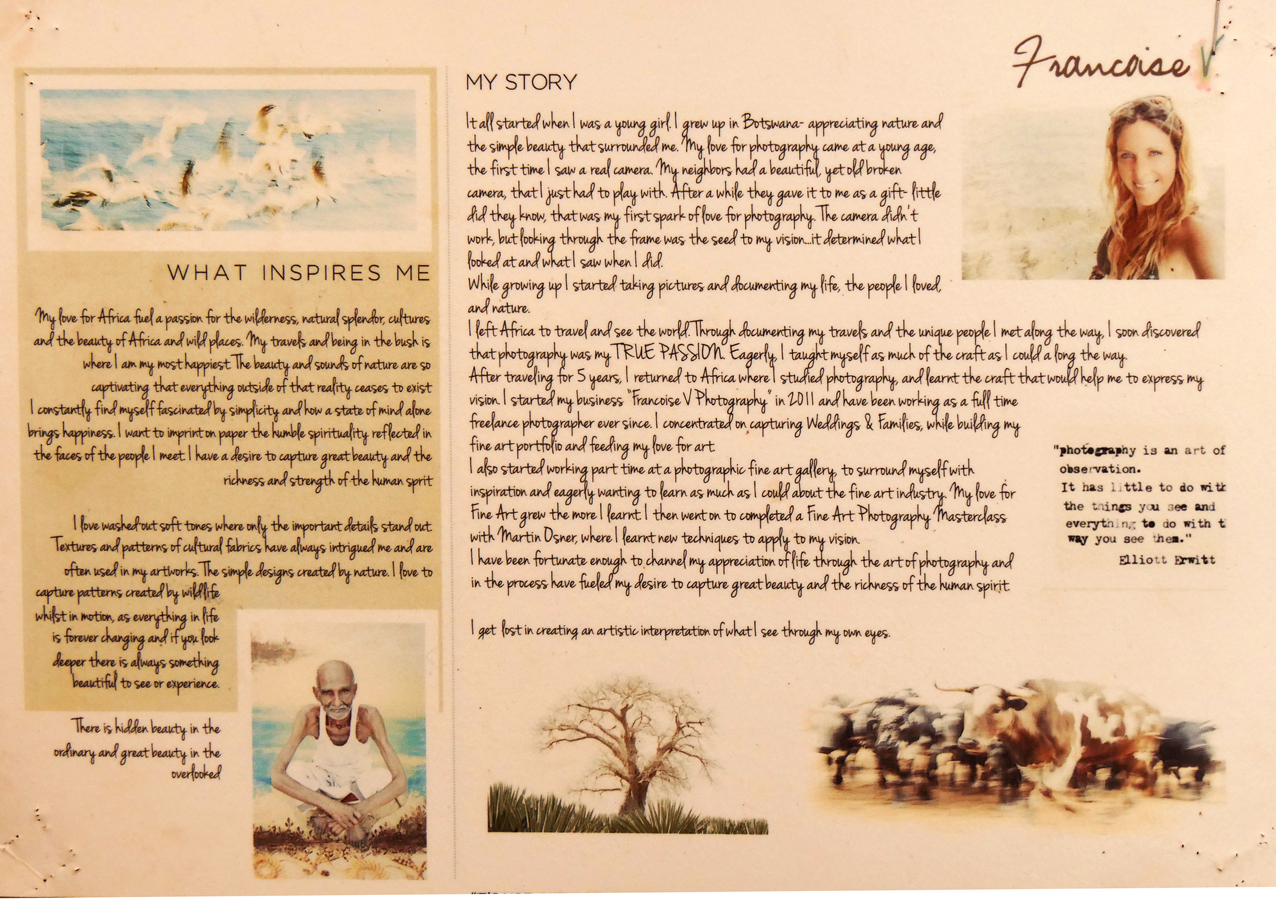 Francoise V
WHAT INSPIRES ME
My love for Africa fuel a passion for the wilderness, natural splendor, cultures
and the beauty of Africa and wild places. My travels and being in the bush is
where I am my most happiest. The beauty and sounds of nature are so
captivating that everything outside of that reality ceases to exist
I constantly find myself fascinated by simplicity and how a state of mind alone
brings happiness. I want to imprint on paper the humble spirituality reflected in
the faces of the people I meet. I have a desire to capture great beauty and the
richness and strength of the human sprit
I love washed out soft tones where only the important details stand out.
Textures and patterns of cultural fabrics have always intrigued me and are
often used in my artworks. The simple designs created by nature. I love to
capture patterns created by wildlife
whilst in motion, as everything in life
is forever changing and if you look
deeper there is always something
beautiful to see or experience.
There is hidden beauty in the
ordinary and great beauty in the
overlooked
MY STORY
It all started when I was a young girl. I grew up in Botswana- appreciating nature and
the simple beauty that surrounded me. My love for photography came at a young age,
the first time I saw a real camera. My neighbors had a beautiful, yet old broken
camera, that I just had to play with. After a while they gave it to me as a gift- little
did they know, that was my first spark of love for photography. The camera didn't
work, but looking through the frame was the seed to my vision...it determined what I
looked at and what I saw when I did.
While growing up I started taking pictures and documenting my life, the people I loved,
and nature.
I left Africa to travel and see the world. Through documenting my travels and the unique people I met along the way, I soon discovered
that photography was my TRUE PASSION. Eagerly, I taught myself as much of the craft as I could a long the way.
After traveling for 5 years, I returned to Africa where I studied photography, and learnt the craft that would help me to express my
vision. I started my business "Francoise V Photography" in 2011 and have been working as a full time
freelance photographer ever since. I concentrated on capturing Weddings & Families, while building my
fine art portfolio and feeding my love for art.
I also started working part time at a photographic fine art gallery, to surround myself with
inspiration and eagerly wanting to learn as much as I could about the fine art industry. My love for
Fine Art grew the more I learnt. I then went on to completed a Fine Art Photography Masterclass
with Martin Osner, where I learnt new techniques to apply to my vision.
I have been fortunate enough to channel my appreciation of life through the art of photography and
in the process have fueled my desire to capture great beauty and the richness of the human spirit.
I get lost in creating an artistic interpretation of what I see through my own eyes.
"photography is an art of
observation.
It has little to do with
the things you see and
everything to do with t
way you see them."
Elliott Erwitt